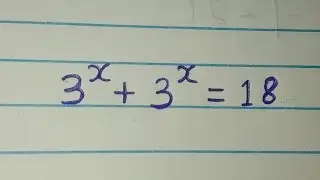 3ˣ + 3ˣ = 18